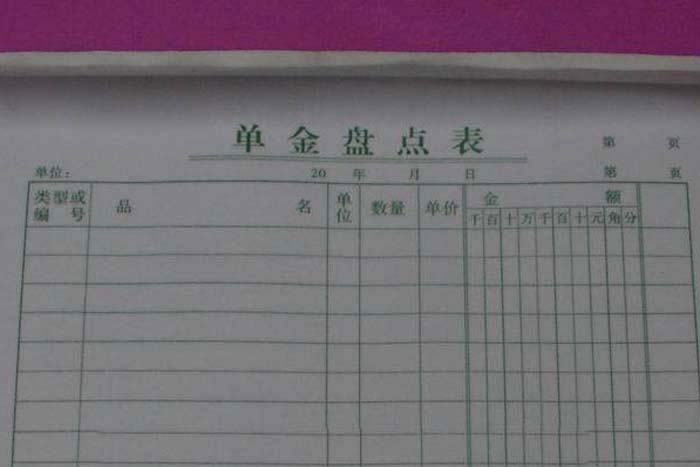 单金盘点表
第 页
单位： 20 年 月 日 第 页
类型或编号 品 名 单位 数量 单价 金 额
千 百 十 万 千 百 十 元 角 分